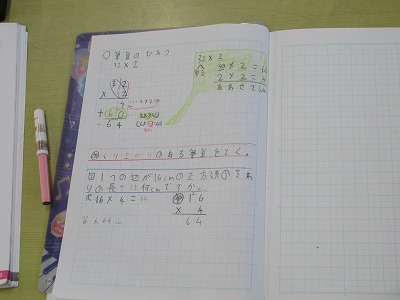 筆算のひみつ
32×2
32
× 2
4 … 2×2
+60 … 
64
32×2
30×2=60
2×2=4
あわせて64
くり上がりのある筆算をとく。
1つの辺が16cmの正方形のまわ
りの長さは何cmですか。
式16×4=64
16
× 4
64
答え64cm